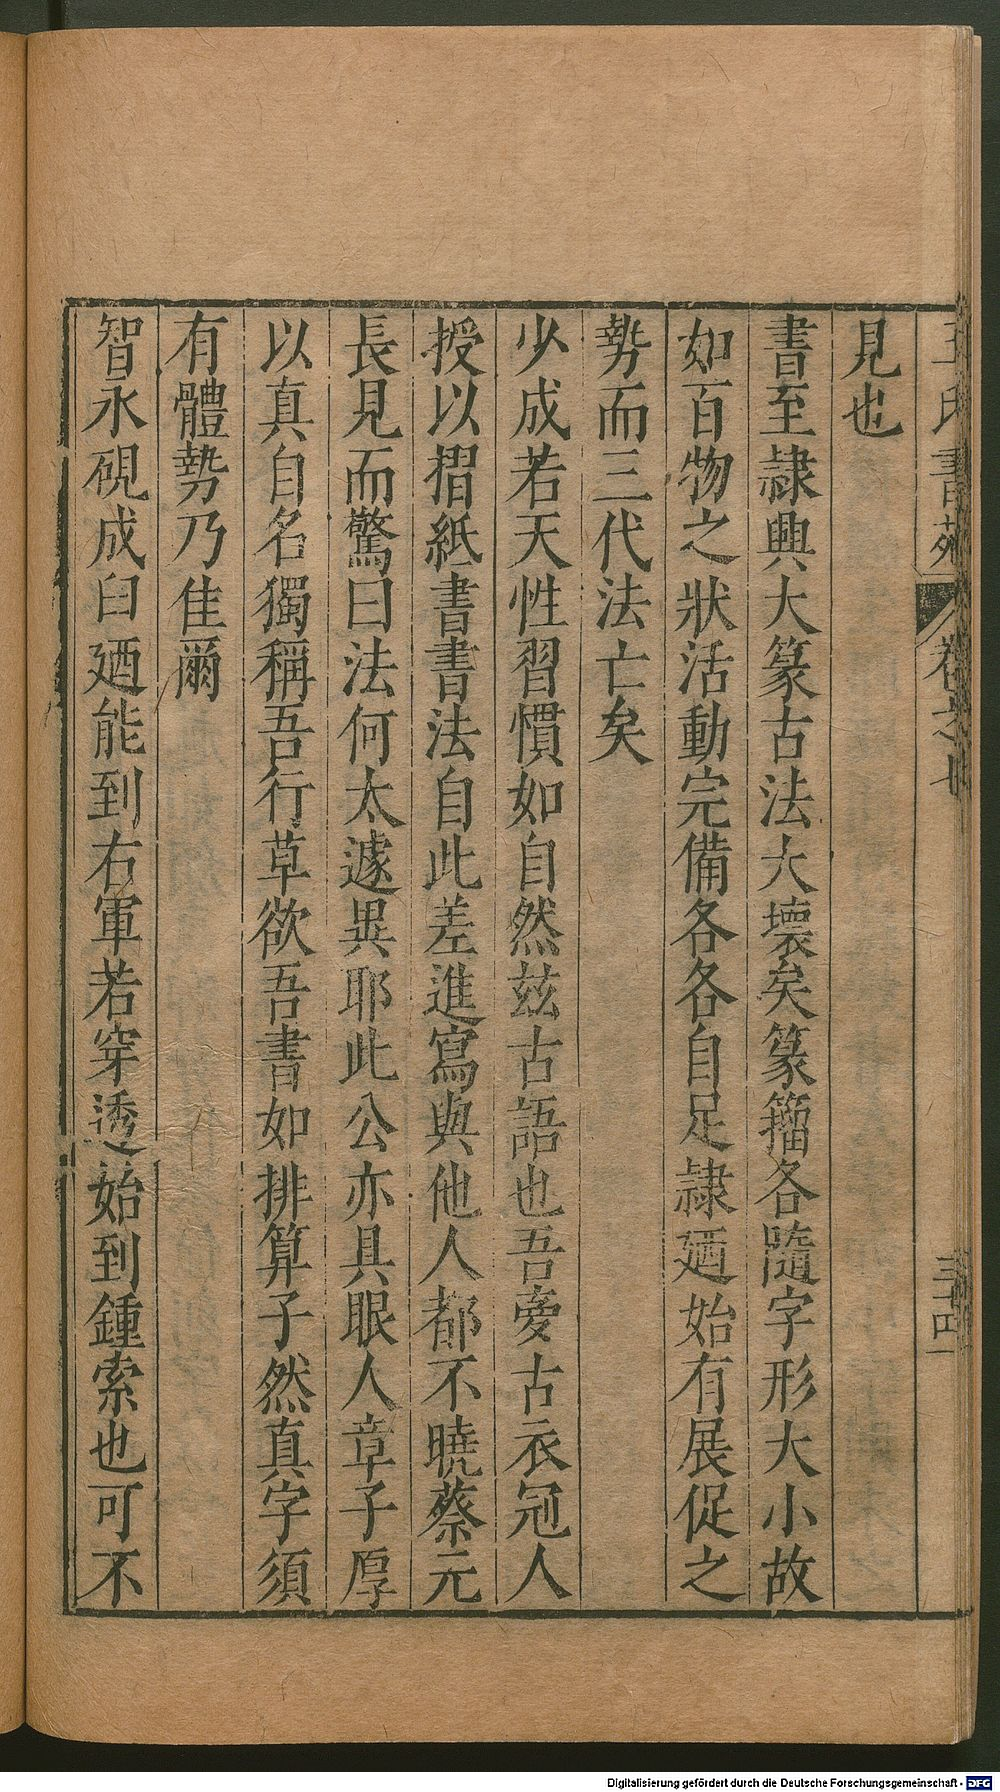 王氏書苑 卷之七 三十四
見也
書至隷興大篆古法大壞矣篆籀各隨字形大小故
如百物之狀活動完備各各自足隷廼始有展促之
勢而三代法亡矣
少成若天性習慣如自然茲古語也吾夢古衣冠人
授以摺紙書書法自此差進寫與他人都不曉蔡元
長見而驚曰法何太遽異耶此公亦具眼人章子厚
以真自名獨稱吾行草欲吾書如排算子然真字須
有體勢乃佳爾
智永硯成臼廼能到右軍若穿透始到鍾索也可不
Digitalisierung gefördert durch die Deutsche Forschungsgemeinschaft - DFG